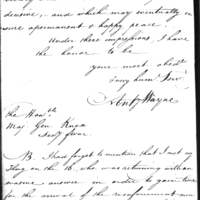 desire, and which may eventually in
sure a permanent & happy peace.
Under these impressions I have
the honor to be
your most obedt
& very huml Servt
Anty Wayne
The Honble
Maj Genl Knox
Secy of War
NB. I had forgot to mention that I met my
flag on the 16, who was returning with an
evasive answer in order to gain time
for the arrival of the reinforcement